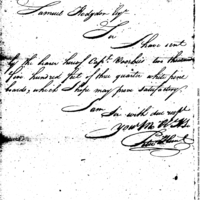 Samuel Hodgdon Esqr
Sir
I have sent
by the bearer hereof Capt. Voorhis two thousand
five hundred feet of three quarter white pine
boards, which I hope may prove satisfactory.
I am
Sir with due respt.
your